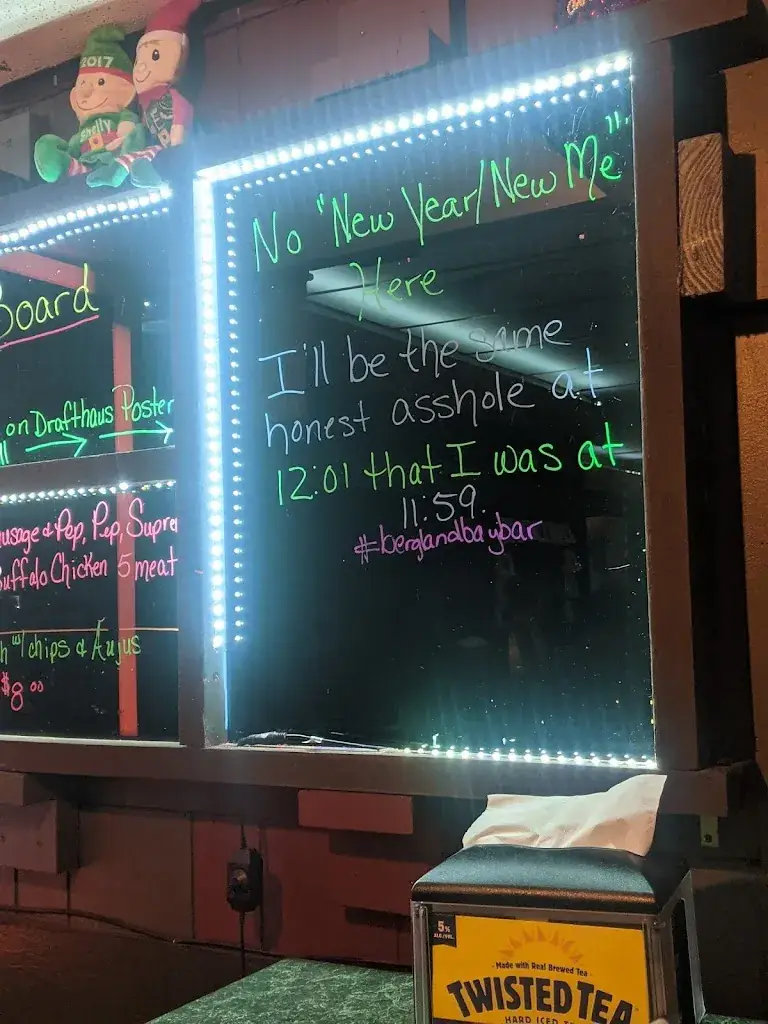 2017
Shelly
Board
on Drafthaus Poster
Sausage & Pep, Pep, Supre
Buffalo Chicken 5 meat
w/ chips & Aujus
$8.00
No "New Year/New Me"
Here
I'll be the same
honest asshole at
12:01 that I was at
11:59.
#berglandbaybar
5%
ALC./VOL.
Made with Real Brewed Tea
TWISTED TEA
HARD ICED